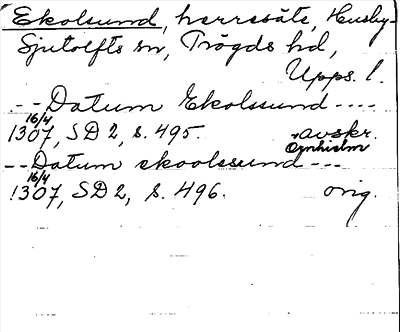 Ekolsund, herrsäte, Husby-
Sjutolfts sn, Trögds hd,
Upps. l.
-- Datum Ekolssund ----
16/4
1307, SD 2, s. 495. avskr.
Örnhielm
-- Datum skoolssund ---
16/4
1307, SD 2, s. 496. orig.